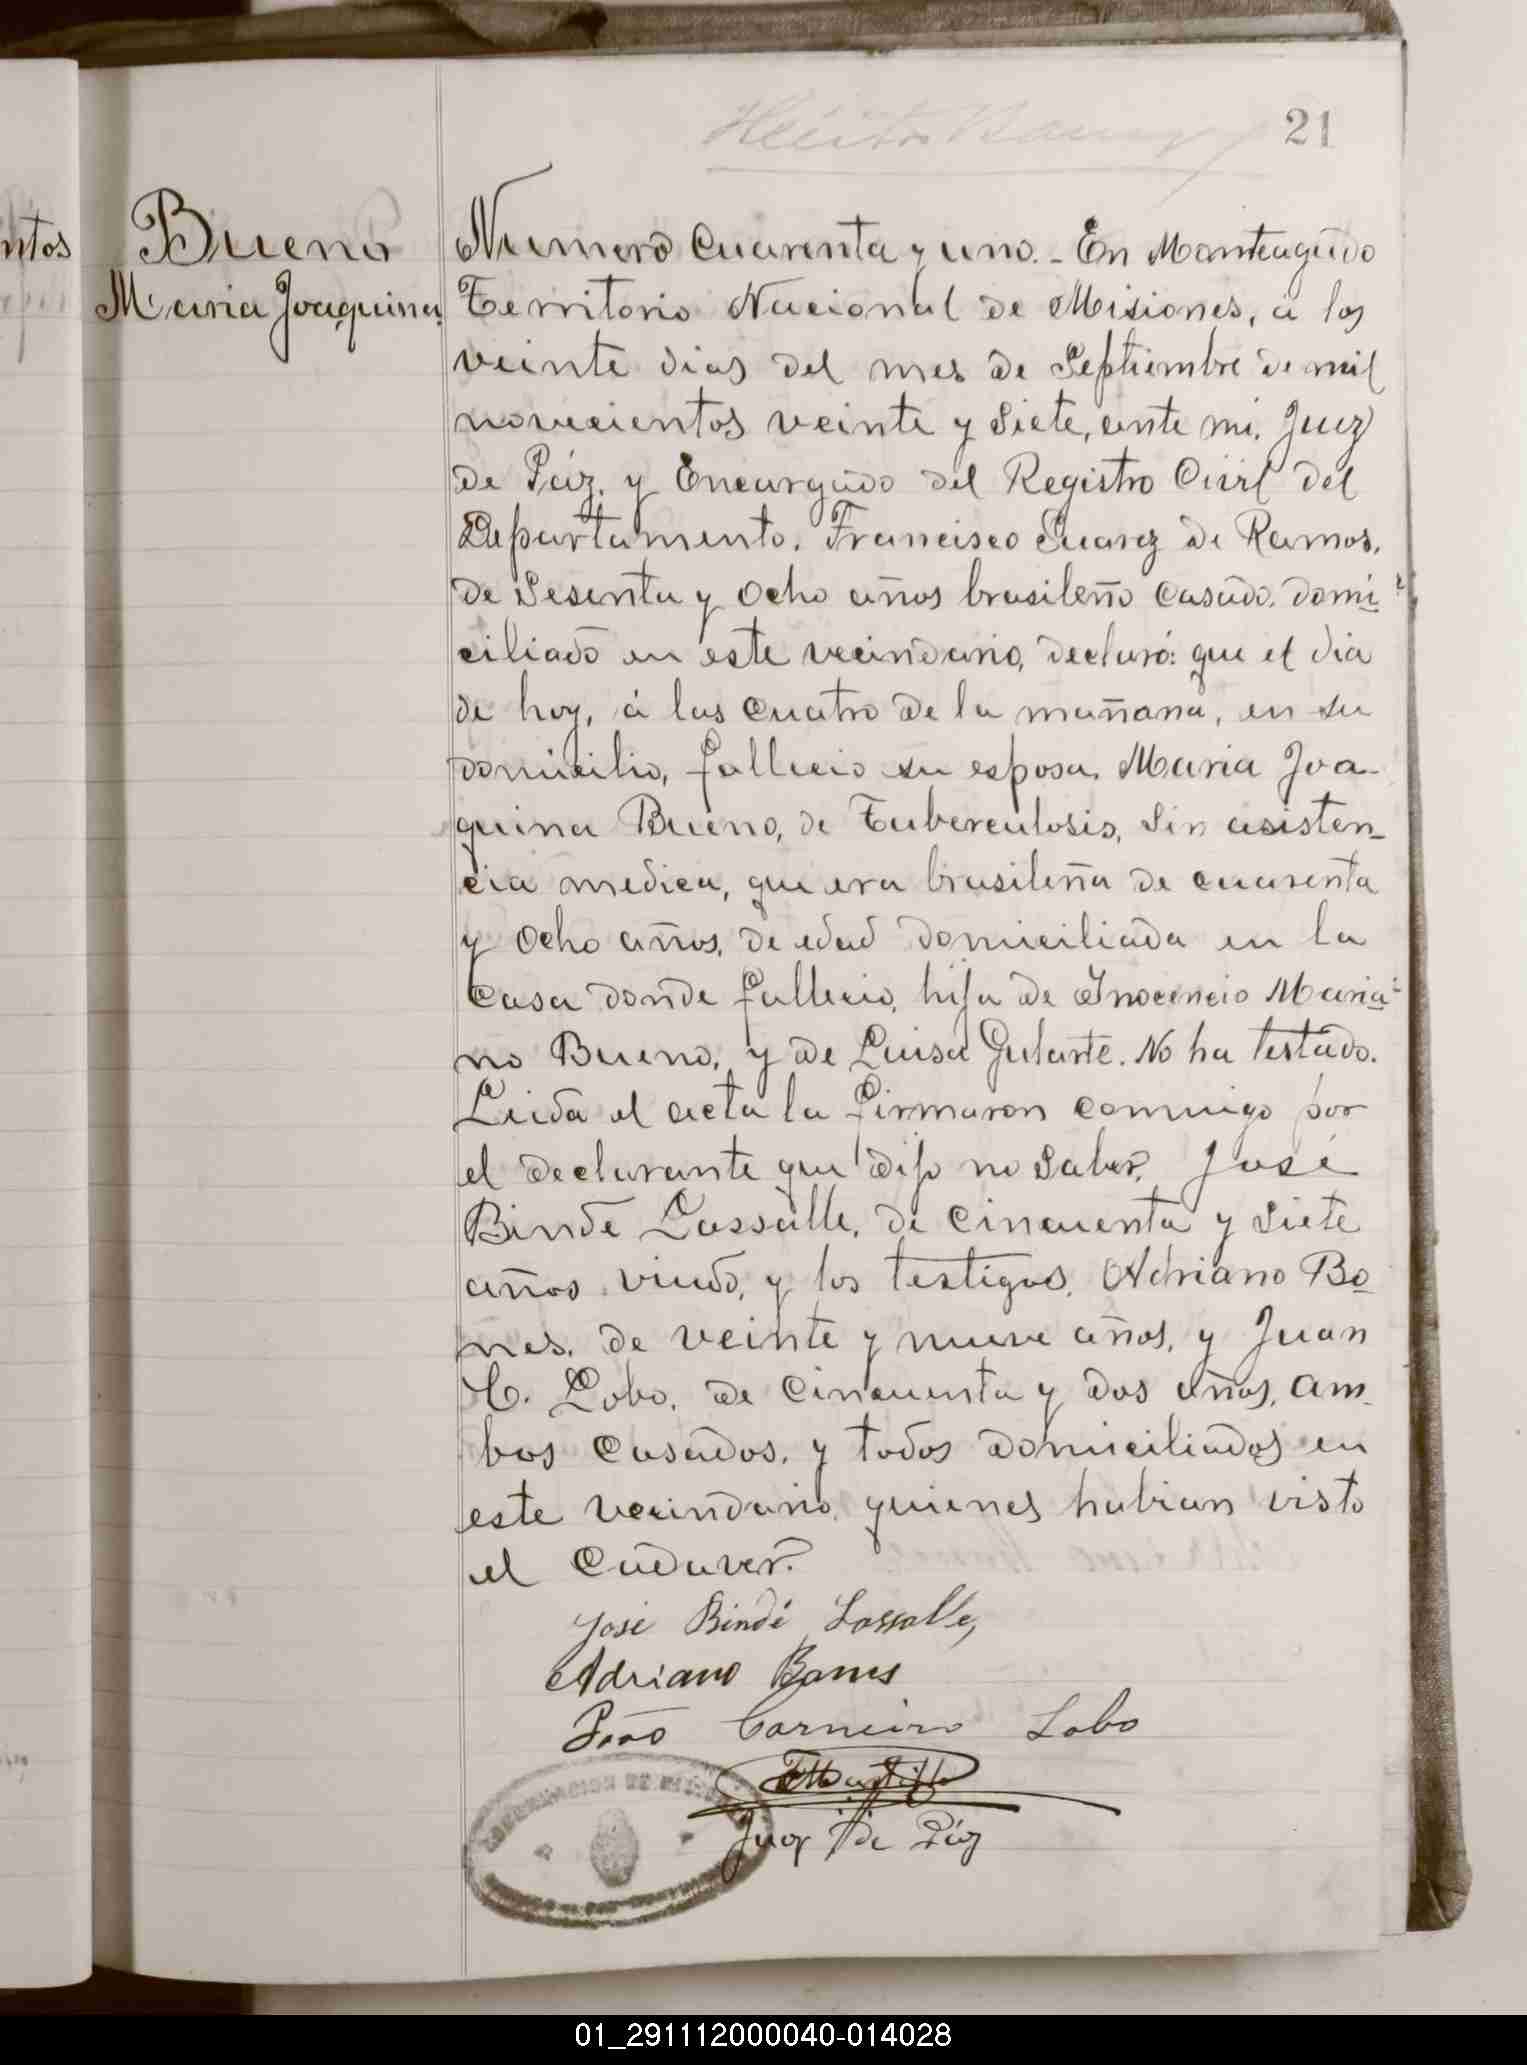 21
ntos
Bueno
Maria Joaquina.
Numero Cuarenta y uno. - En Monteagudo
Territorio Nacional de Misiones, á los
veinte dias del mes de Septiembre de mil
novecientos veinte y siete, ante mi. Juez
de Páz. y Encargado del Registro Civil del
Departamento. Francisco Suarez de Ramos.
de Sesenta y Ocho años brasileño Casado. domi
ciliado en este vecindario, declaró: que el dia
de hoy, á las cuatro de la mañana, en su
domicilio, fallecio su esposa. Maria Joa-
quina Bueno, de Tuberculosis, Sin asisten-
cia medica, que era brasileña de cuarenta
y Ocho años, de edad domiciliada en la
Casa donde fallecio, hija de Inocencio Maria-
no Bueno, y de Luisa Gularte. No ha testado.
Leida el acta la firmaron conmigo por
el declarante que dijo no Saber, José
Bindé Lassalle, de Cincuenta y Siete
años viudo, y los testigos, Adriano Bo-
nes. de veinte y nueve años, y Juan
C. Lobo, de Cincuenta y dos años, am-
bos Casados. y todos domiciliados en
este vecindario, quienes habian visto
el Cadaver.
José Bindé Lassalle,
Adriano Bones
João Carneiro Lobo
Juez de Páz
GOBERNACION DE MISIONES
01_291112000040-014028